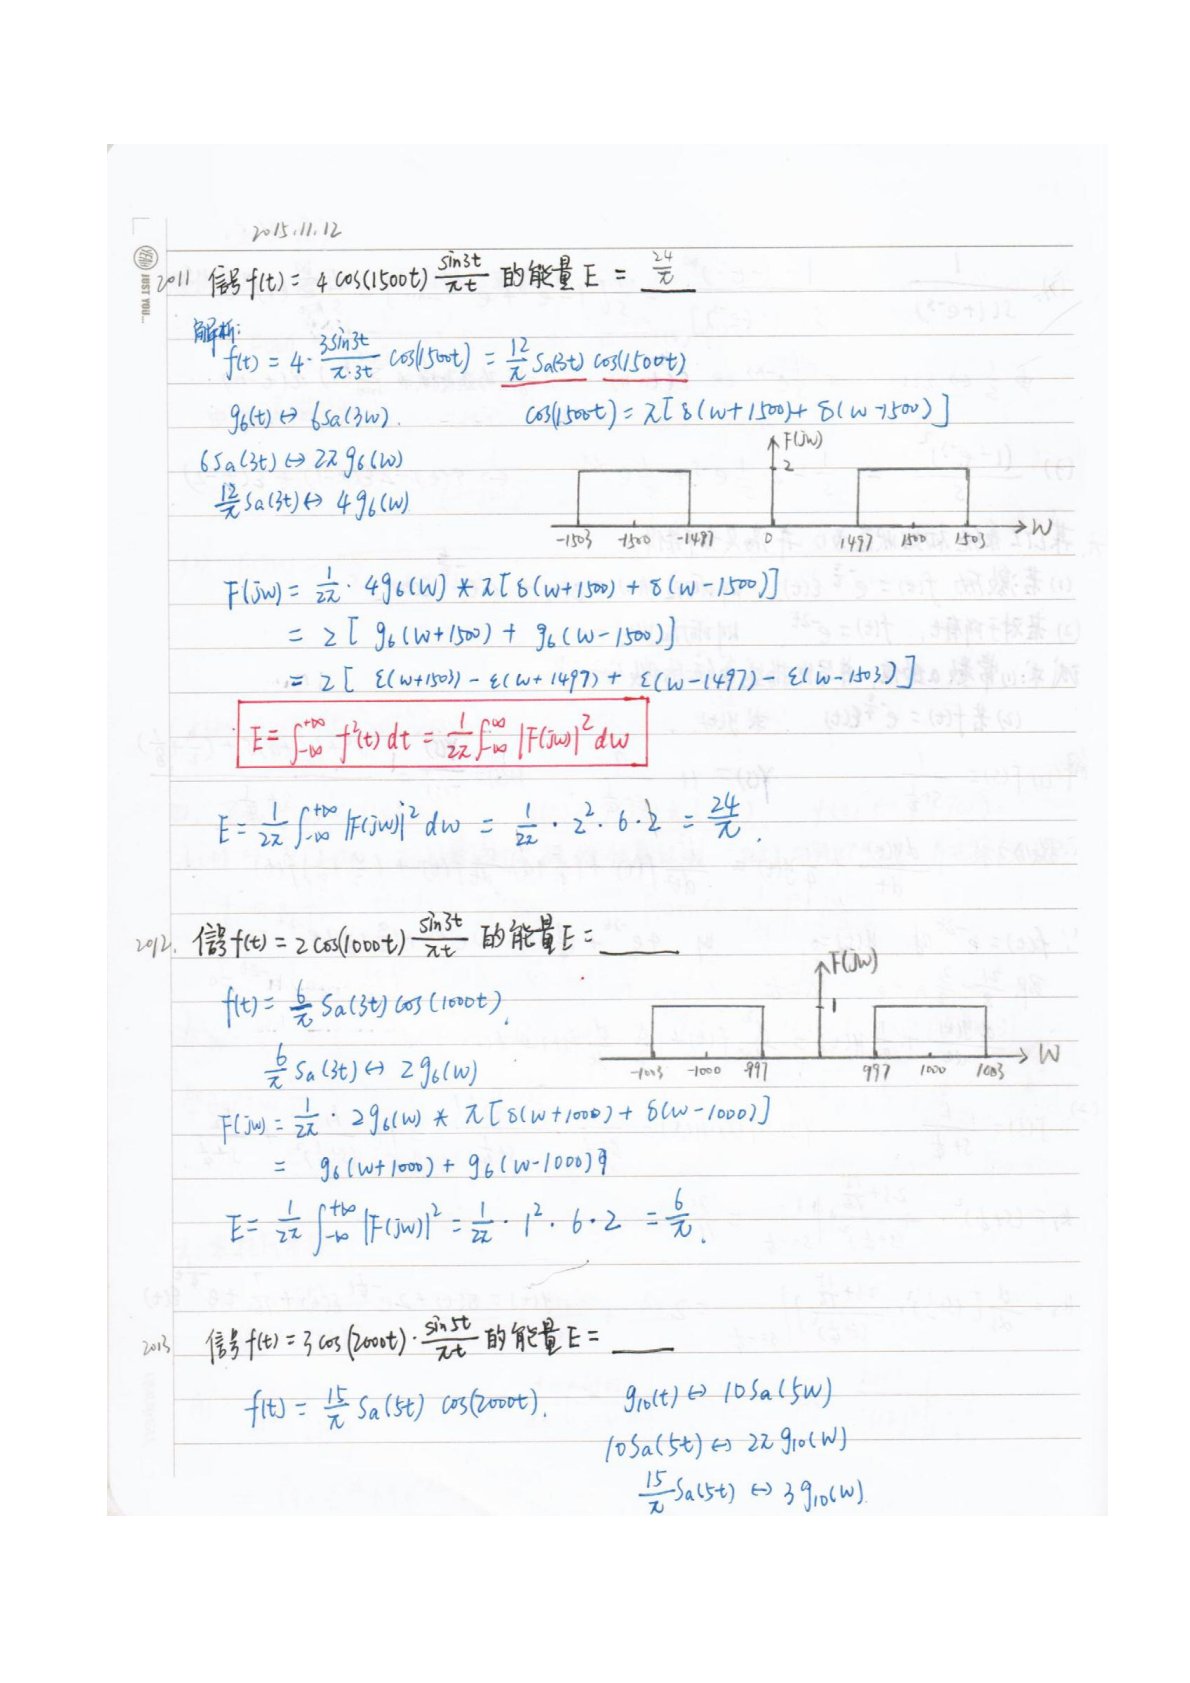 2015.11.12
YEAH JUST YOU...
2011 信号f(t) = 4cos(1500t) sin3t/πt 的能量E = 24/π
解析:
f(t) = 4· 3sin3t/π·3t cos(1500t) = 12/π Sa(3t) cos(1500t)
g6(t) ↔ 6Sa(3w). cos(1500t) = π[δ(w+1500)+δ(w-1500)]
6Sa(3t) ↔ 2πg6(w)
12/π Sa(3t) ↔ 4g6(w)
F(jw)
2
-1503 -1500 -1497 0 1497 1500 1503 W
F(jw) = 1/2π · 4g6(w) * π[δ(w+1500) + δ(w-1500)]
= 2[g6(w+1500) + g6(w-1500)]
= 2[ε(w+1503) - ε(w+1497) + ε(w-1497) - ε(w-1503)]
E = ∫_{-∞}^{+∞} f²(t)dt = 1/2π ∫_{-∞}^{∞} |F(jw)|² dw
E = 1/2π ∫_{-∞}^{+∞} |F(jw)|² dw = 1/2π · 2² · 6 · 2 = 24/π.
2012. 信号f(t) = 2cos(1000t) sin3t/πt 的能量E = ____
f(t) = 6/π Sa(3t) cos(1000t).
6/π Sa(3t) ↔ 2g6(w)
F(jw)
1
-1003 -1000 -997 997 1000 1003 W
F(jw) = 1/2π · 2g6(w) * π[δ(w+1000) + δ(w-1000)]
= g6(w+1000) + g6(w-1000)
E = 1/2π ∫_{-∞}^{+∞} |F(jw)|² = 1/2π · 1² · 6 · 2 = 6/π.
2013 信号f(t) = 3cos(2000t) · sin5t/πt 的能量E = ____
f(t) = 15/π Sa(5t) cos(2000t). g10(t) ↔ 10Sa(5w)
10Sa(5t) ↔ 2πg10(w)
15/π Sa(5t) ↔ 3g10(w).